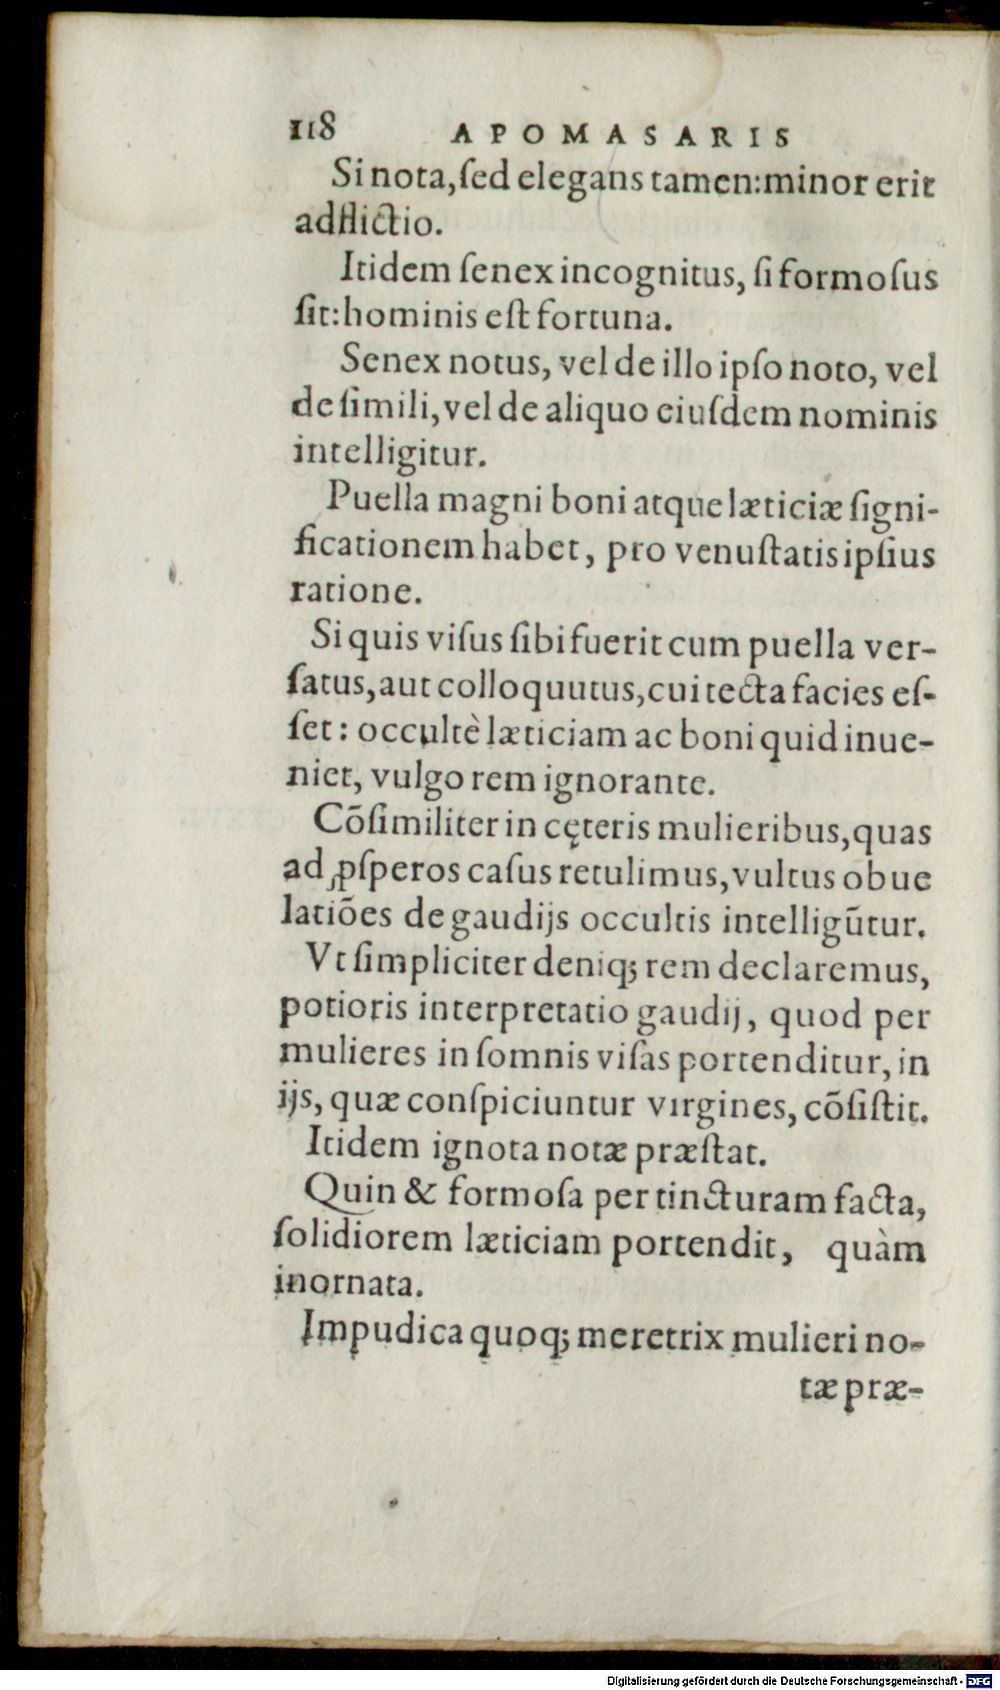 118 APOMASARIS
Si nota, ſed elegans tamen: minor erit
adflictio.
Itidem ſenex incognitus, ſi formoſus
ſit: hominis eſt fortuna.
Senex notus, vel de illo ipſo noto, vel
de ſimili, vel de aliquo eiuſdem nominis
intelligitur.
Puella magni boni atque læticiæ ſigni-
ficationem habet, pro venuſtatis ipſius
ratione.
Si quis viſus ſibi fuerit cum puella ver-
ſatus, aut colloquutus, cui tecta facies eſ-
ſet: occultè læticiam ac boni quid inue-
niet, vulgo rem ignorante.
Cõſimiliter in cęteris mulieribus, quas
ad ꝓſperos caſus retulimus, vultus obue
latiões de gaudijs occultis intelligũtur.
Vt ſimpliciter deniq; rem declaremus,
potioris interpretatio gaudij, quod per
mulieres in ſomnis viſas portenditur, in
ijs, quæ conſpiciuntur virgines, cõſiſtit.
Itidem ignota notæ præſtat.
Quin & formoſa per tincturam facta,
ſolidiorem læticiam portendit, quàm
inornata.
Impudica quoq; meretrix mulieri no-
tæ præ-
Digitalisierung gefördert durch die Deutsche Forschungsgemeinschaft - DFG